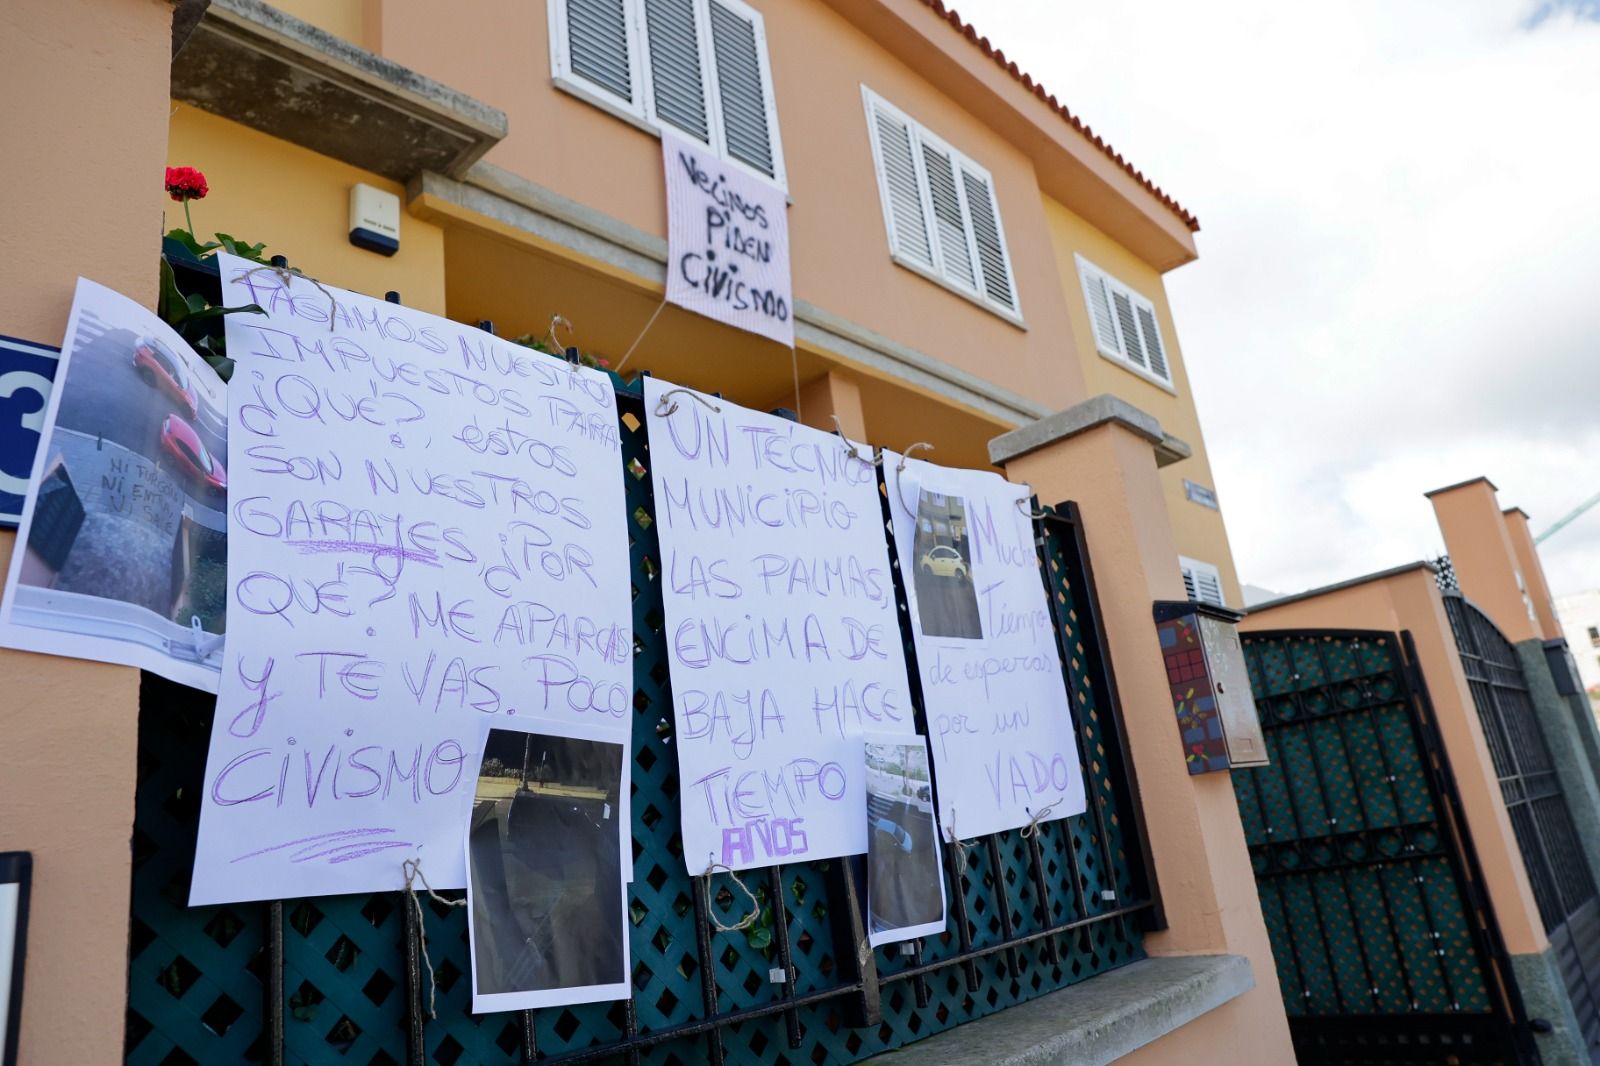 VECINOS
PIDEN
CIVISMO
3
NI FURGÓN
NI ENTRA
NI SALE
PAGAMOS NUESTROS
IMPUESTOS PARA
¿QUÉ?, éstos
SON NUESTROS
GARAJES, ¿POR
QUÉ? ME APARCAS
Y TE VAS. POCO
CIVISMO
UN TÉCNICO
MUNICIPIO
LAS PALMAS,
ENCIMA DE
BAJA HACE
TIEMPO
AÑOS
Mucho
Tiempo
de esperas
por un
VADO